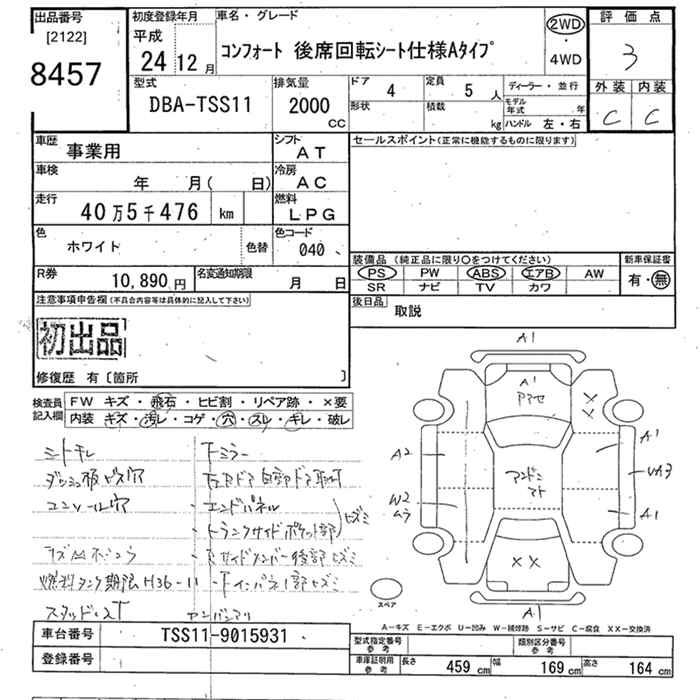 出品番号
[2122]
8457
初度登録年月
平成
24 12月
車名・グレード
コンフォート 後席回転シート仕様Aタイプ
2WD
・
4WD
評価点
3
外装 内装
C C
型式
DBA-TSS11
排気量
2000
CC
ドア 4
定員 5 人
形状
積載 kg
ディーラー・並行
モデル年式 年
ハンドル 左・右
車歴 事業用
シフト AT
車検 年 月( 日)
冷房 AC
走行 40万5千476 km
燃料 LPG
色 ホワイト
色替
色コード 040
R券 10,890円
名変通知期限 月 日
セールスポイント(正常に機能するものに限ります)
装備品 (純正品に限り○をつけてください)
新車保証書
PS PW ABS エアB AW
有・無
SR ナビ TV カワ
後日品 取説
注意事項申告欄(不具合内容等は具体的に記入して下さい)
初出品
修復歴 有〔箇所 〕
検査員記入欄
FW キズ・飛石・ヒビ割・リペア跡・×要
内装 キズ・汚レ・コゲ・穴・スレ・キレ・破レ
シートキレ
下ミラー
コンソール穴
エンドパネル
トランクサイドポケット部
ヒズミ
燃料タンク期限H36-11
アンバサリ
A1
A1
××
A2
A1
アンドン
マト
UA3
W2
ムラ
A1
××
A1
スペア
A-キズ E-エクボ U-凹み W-補修跡 S-サビ C-腐食 XX-交換済
車台番号 TSS11-9015931
登録番号
型式指定番号
参考
類別区分番号
参考
車庫証明用
参考
長さ 459 cm 幅 169 cm 高さ 164 cm